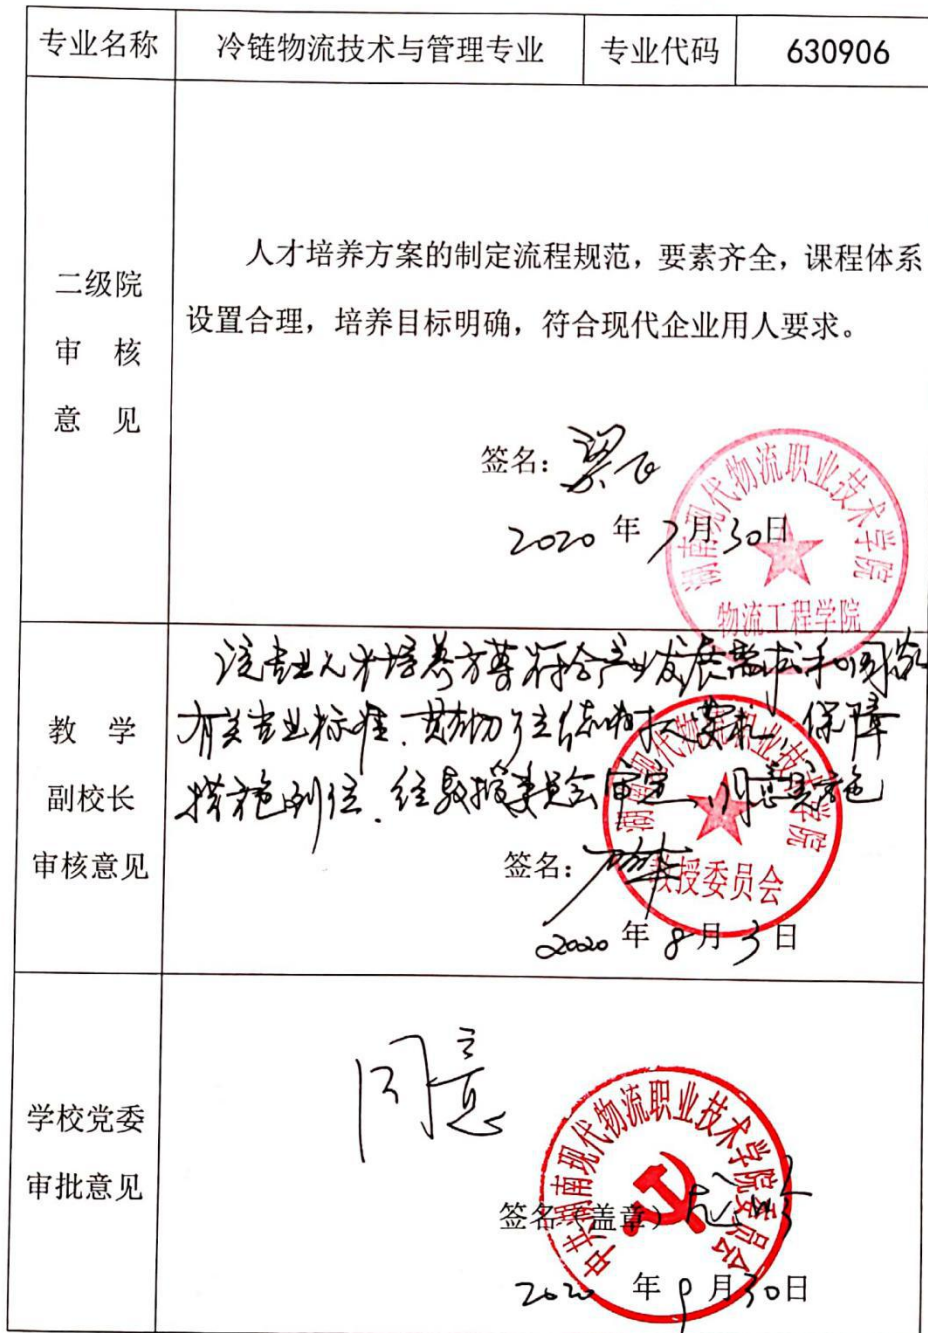 专业名称 冷链物流技术与管理专业 专业代码 630906
二级院
审 核
意 见
人才培养方案的制定流程规范，要素齐全，课程体系
设置合理，培养目标明确，符合现代企业用人要求。
签名：
2020 年 7 月 30 日
湖南现代物流职业技术学院
物流工程学院
教 学
副校长
审核意见
该专业人才培养方案符合产业发展需求和国家
有关专业标准，贯彻了立德树人要求，保障
措施到位，经教授委员会审定，同意实施
签名：
湖南现代物流职业技术学院
教授委员会
2020 年 8 月 3 日
学校党委
审批意见
同意
签名（盖章）
中共湖南现代物流职业技术学院委员会
2020 年 9 月 30 日